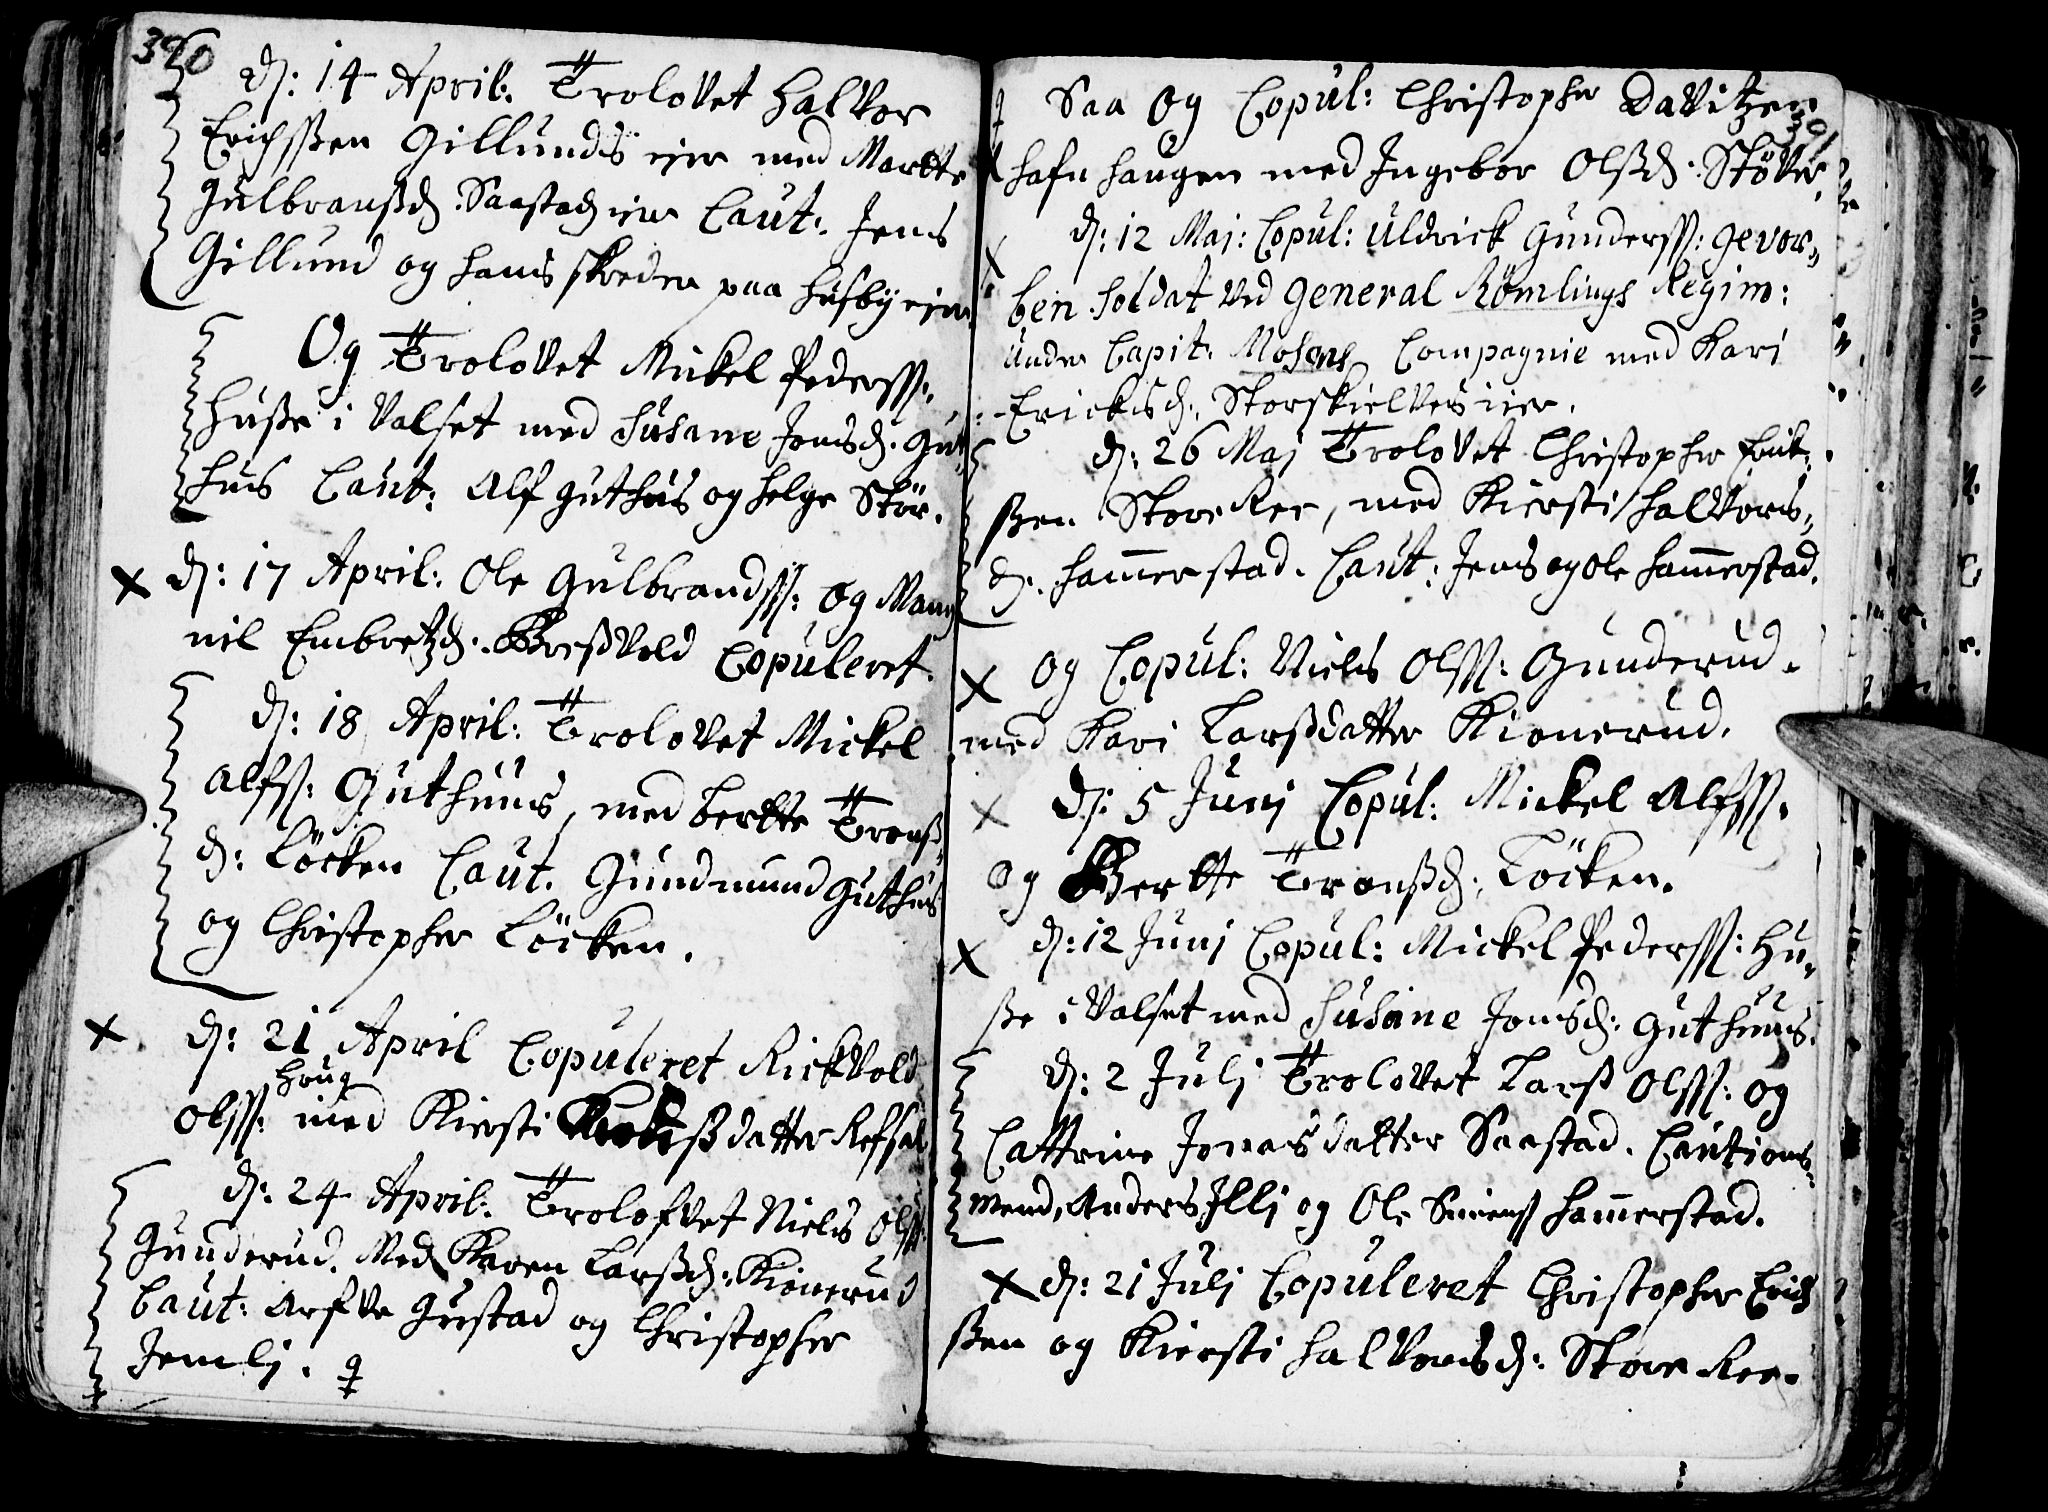 390
d: 14 April: Trolovet Halvor
Erichsßen Gillunds eier med Martte
Gulbransßd: Saastad eier Caut: Jens
Gillund og Hans skreder paa Husby eier
Og Trolovet Mickel Pederss:
Huße i Valset med Susane Jonsd. Gut-
hus Caut: Alf Guthus og Helge Stör.
d: 17 April: Ole Gulbrandss: og Mang
nil Embretzd: Großvold Copuleret.
d: 18 April: Trolovet Mickel
Alfs: Guthuus, med Bertte Tronß
d: Löcken Caut. Gundmund Guthus
og Christopher Löcken.
d: 21 April Copuleret Rickvold
Haug
Olss: med Kiersti datter Refsal
d: 24 April: Trolofvet Niels Olss:
Gunderud. Med Karen Larßd: Kionerud
Caut: Arfve Gustad og Christopher
Jemlj.
Saa og Copul: Christopher Davitzen
Hafn Haugen med Ingebor Olßd: Stöver.
d: 12 Maj: Copul: Uldrick Gunderss: gevor„
ben Soldat ved General Römlings Regim:
under Capit: Mosens Compagnie med Kari
Ericksd: Storskielves eier.
d: 26 Maj Trolovet Christopher Erik-
ßen Store Ree, med Kiersti Halvors„
d. Hamerstad. Caut: Jens og Ole Hamerstad.
og Copul: Niels Olss: Gunderud.
med Kari Larßdatter Kionerud.
d: 5 Junj Copul: Mickel Alfss:
og Bertte Tronßd: Löcken.
d: 12 Junj Copul: Mickel Pederss: Hu„
ße i Valset med Susane Jonsd: Guthuus.
d: 2 Julj Trolovet Larß Olss: og
Cattrine Jonasdatter Saastad. Cautions
mend, Anders Illj og Ole Hamerstad.
d: 21 Julj Copuleret Christopher Erich
ßen og Kiersti Halvorsd: Store Ree.